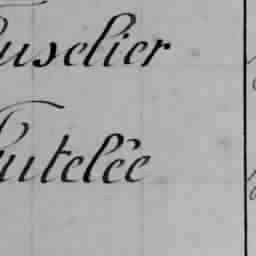 uselier
utelée